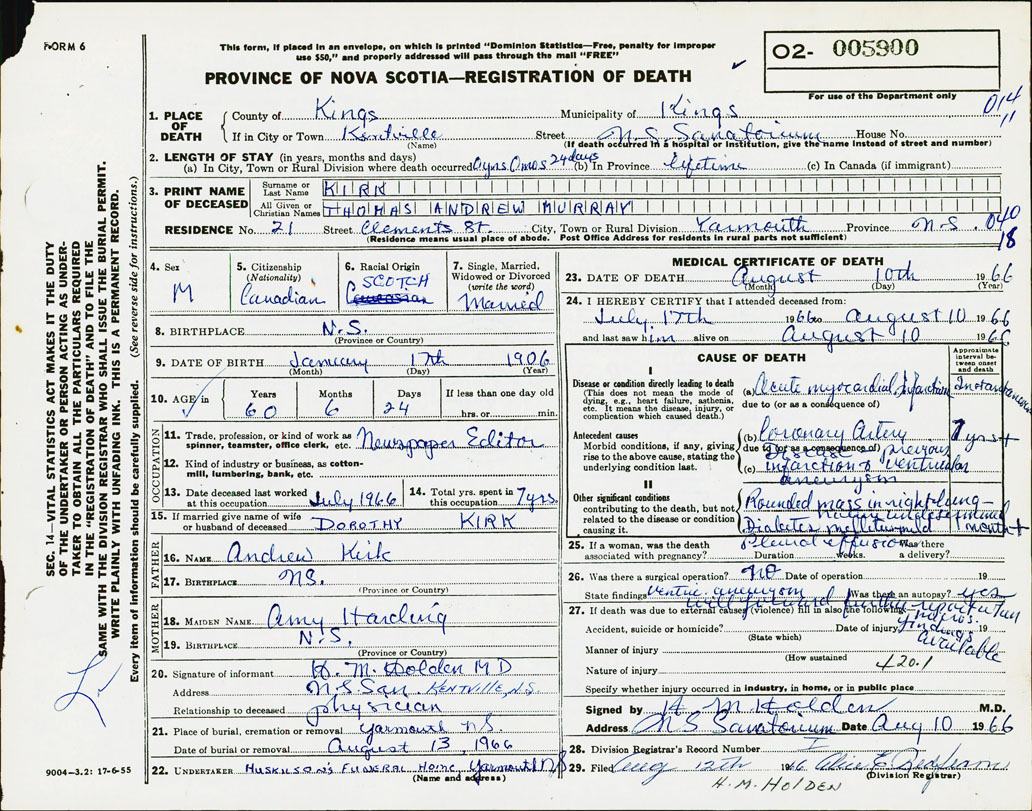 FORM 6
This form, if placed in an envelope, on which is printed "Dominion Statistics—Free, penalty for improper
use $50," and properly addressed will pass through the mail "FREE"
PROVINCE OF NOVA SCOTIA—REGISTRATION OF DEATH
O2- 005900
For use of the Department only
014
11
1. PLACE OF DEATH County of Kings Municipality of Kings
If in City or Town Kentville Street N.S. Sanatorium House No.
(Name) (If death occurred in a hospital or institution, give the name instead of street and number)
2. LENGTH OF STAY (in years, months and days)
(a) In City, Town or Rural Division where death occurred 0 yrs 0 mos 24 days (b) In Province lifetime (c) In Canada (if immigrant)
3. PRINT NAME OF DECEASED Surname or Last Name KIRK
All Given or Christian Names THOMAS ANDREW MURRAY
RESIDENCE No. 21 Street Clements St. City, Town or Rural Division Yarmouth Province N.S. 040
18
(Residence means usual place of abode. Post Office Address for residents in rural parts not sufficient)
4. Sex M
5. Citizenship (Nationality) Canadian
6. Racial Origin SCOTCH Caucasian
7. Single, Married, Widowed or Divorced (write the word) Married
8. BIRTHPLACE N.S.
(Province or Country)
9. DATE OF BIRTH January 17th 1906
(Month) (Day) (Year)
10. AGE in Years Months Days If less than one day old
60 6 24 hrs. or min.
OCCUPATION
11. Trade, profession, or kind of work as spinner, teamster, office clerk, etc. Newspaper Editor
12. Kind of industry or business, as cotton-mill, lumbering, bank, etc.
13. Date deceased last worked at this occupation July 1966
14. Total yrs. spent in this occupation 7 yrs.
15. If married give name of wife or husband of deceased DOROTHY KIRK
FATHER
16. NAME Andrew Kirk
17. BIRTHPLACE N.S.
(Province or Country)
MOTHER
18. MAIDEN NAME Amy Harding
19. BIRTHPLACE N.S.
(Province or Country)
20. Signature of informant H. M. Holden MD
Address N.S. San. KENTVILLE, N.S.
Relationship to deceased physician
21. Place of burial, cremation or removal Yarmouth N.S.
Date of burial or removal August 13, 1966
22. UNDERTAKER HUSKILSON'S FUNERAL HOME Yarmouth NS
(Name and address)
MEDICAL CERTIFICATE OF DEATH
23. DATE OF DEATH August 10th 1966
(Month) (Day) (Year)
24. I HEREBY CERTIFY that I attended deceased from:
July 17th 1966 to August 10 1966
and last saw him alive on August 10 1966
CAUSE OF DEATH
Approximate interval between onset and death
I
Disease or condition directly leading to death
(This does not mean the mode of dying, e.g., heart failure, asthenia, etc. It means the disease, injury, or complication which caused death.)
(a) Acute myocardial infarction Instantaneous
due to (or as a consequence of)
Antecedent causes
Morbid conditions, if any, giving rise to the above cause, stating the underlying condition last.
(b) Coronary Artery 7 yrs+
due to (or as a consequence of)
Disease previous
(c) infarction & ventricular
aneurysm
II
Other significant conditions contributing to the death, but not related to the disease or condition causing it.
Rounded mass in right lung—
Diabetes mellitus mild month+
Pleural effusion
25. If a woman, was the death associated with pregnancy? Duration weeks. Was there a delivery?
26. Was there a surgical operation? no Date of operation 19
State findings ventric. aneurysm Was there an autopsy? yes
will forward further report when
findings available
27. If death was due to external causes (violence) fill in also the following:—
Accident, suicide or homicide? Date of injury 19
(State which)
Manner of injury
(How sustained
420.1
Nature of injury
Specify whether injury occurred in industry, in home, or in public place
Signed by H. M. Holden M.D.
Address N S Sanatorium Date Aug 10 1966
28. Division Registrar's Record Number
29. Filed Aug 12th 1966
(Division Registrar)
H. M. HOLDEN
SEC. 14—VITAL STATISTICS ACT MAKES IT THE DUTY
OF THE UNDERTAKER OR PERSON ACTING AS UNDER-
TAKER TO OBTAIN ALL THE PARTICULARS REQUIRED
IN THE "REGISTRATION OF DEATH" AND TO FILE THE
SAME WITH THE DIVISION REGISTRAR WHO SHALL ISSUE THE BURIAL PERMIT.
WRITE PLAINLY WITH UNFADING INK. THIS IS A PERMANENT RECORD.
Every item of information should be carefully supplied. (See reverse side for instructions.)
9004—3.2: 17-6-55